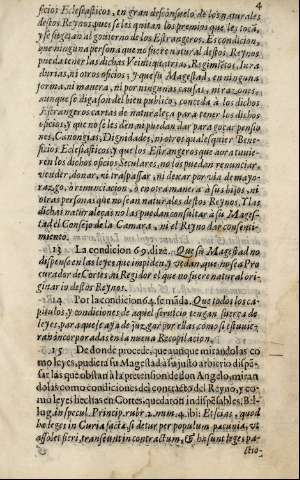 4
ficios Eclesiasticos, en gran desconsuelo de los naturales
destos Reynos, pues se les quitan los premios que les tocã,
y se sugetan al gouierno de los Estrangeros. Es condicion,
que ninguna persona que no fuere natural destos Reynos
pueda tener las dichas Veintiquatrias, Regimientos, Iura
durias, ni otros oficios, y que su Magestad, en ninguna
forma, ni manera, ni por ningunas causas, ni razones,
aunque se digan son del bien publico, conceda à los dichos
Estrangeros cartas de naturaleza para tener los dichos
oficios, y que no se les den ni puedan dar para gozar pensio
nes, Canongias, Dignidades, ni otros qualesquier Bene-
ficios Eclesiasticos, y que los Estrangeros que aora tuuie-
ren los dichos oficios Seculares, no los puedan renunciar,
vender, donar, ni traspassar, ni dexar por via de mayo-
razgo, ò renunciacion, ò en otra manera à sus hijos, ni
otras personas que no sean naturales destos Reynos. Y las
dichas naturalezas no las puedan consultar à su Mages-
tad el Consejo de la Camara, ni el Reyno dar consenti-
miento.
13 La condicion 60. dize. Que su Magestad no
dispense en las leyes que impiden, y vedan que no sea Pro
curador de Cortes, ni Regidor el que no fuere natural ori-
ginario destos Reynos.
14 Por la condicion 64. se mãda. Que todos los ca-
pitulos y condiciones de aquel seruicio tengan fuerça de
leyes, para que se aya de juzgar por ellas como si estuuie-
ran incorporadas en la nueua Recopilacion.
15 De donde procede, que aunque mirandolas co
mo leyes, pudiera su Magestad à su justo arbitrio dispẽ-
sar las que obstan à la pretension de don Angelo, miran
dolas como condiciones del contracto del Reyno, y co-
mo leyes hechas en Cortes, quedaron indispẽsables. Bell-
lug. in specul. Princip. rubr. 2. num. 4. ibi: Et scias, quod
ho leges in Curia facta, si detur per populum pecunia, vt
assolet fieri, transeunt in contractum, & he sunt leges pa-
ctio-